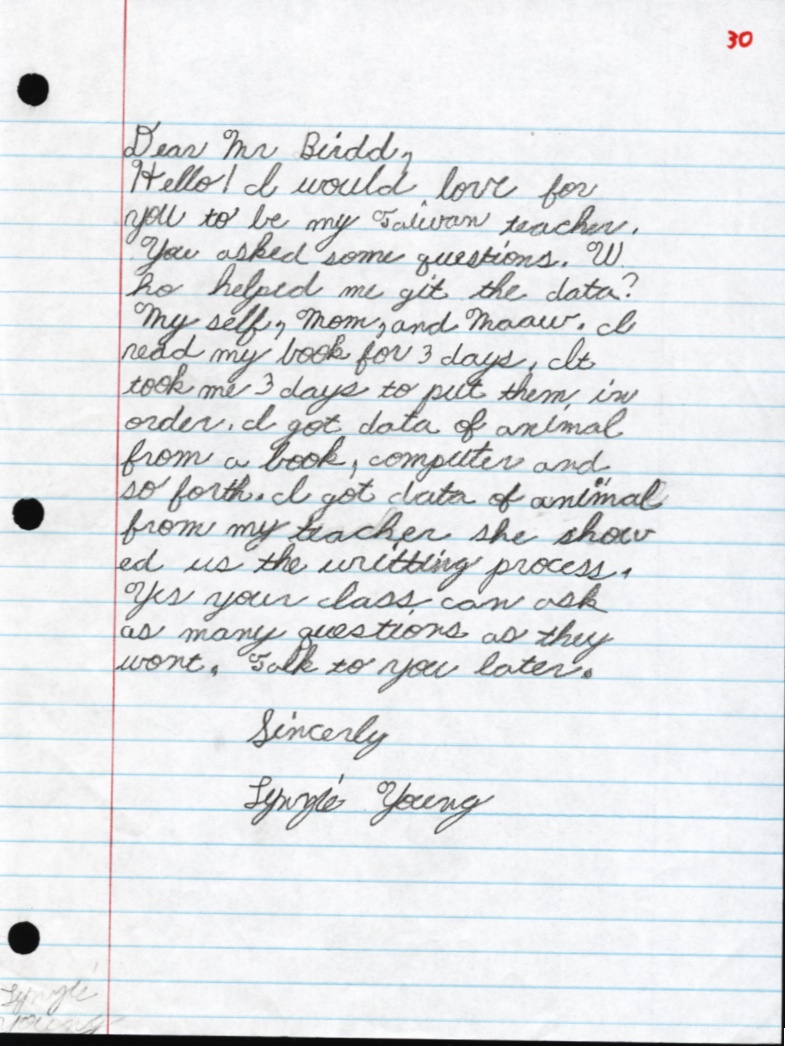 30
Dear Mr Birdd,
Hello! I would love for
you to be my Taiwan teacher.
You asked some questions. W
ho helped me git the data?
My self, Mom, and Maaw. I
read my book for 3 days. It
took me 3 days to put them in
order. I got data of animal
from a book, computer and
so forth. I got data of animal
from my teacher she show
ed us the writting process.
Yes your class can ask
as many questions as they
wont. Talk to you later.
Sincerly
Lyngié Young
Lyngié
Young